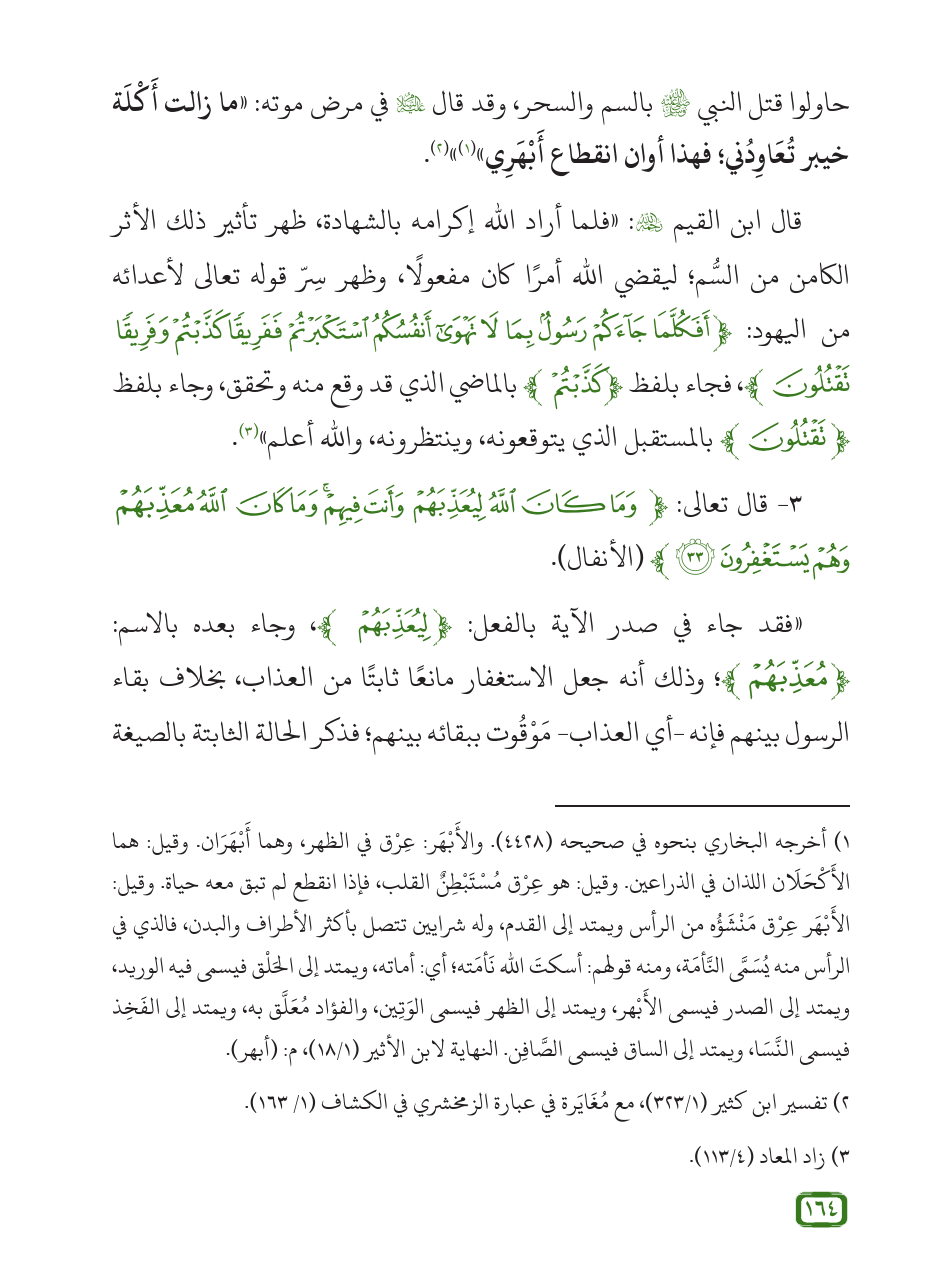 حاولوا قتل النبي ﷺ بالسم والسحر، وقد قال ﵇ في مرض موته: «ما زالت أَكْلَة
خيبر تُعَاوِدُني؛ فهذا أوان انقطاع أَبْهَرِي»(١)»(٢).
قال ابن القيم ﵀: «فلما أراد الله إكرامه بالشهادة، ظهر تأثير ذلك الأثر
الكامن من السُّم؛ ليقضي الله أمرًا كان مفعولًا، وظهر سِرّ قوله تعالى لأعدائه
من اليهود: ﴿أَفَكُلَّمَا جَآءَكُمْ رَسُولُۢ بِمَا لَا تَهْوَىٰٓ أَنفُسُكُمُ ٱسْتَكْبَرْتُمْ فَفَرِيقًا كَذَّبْتُمْ وَفَرِيقًا
تَقْتُلُونَ﴾، فجاء بلفظ ﴿كَذَّبْتُمْ﴾ بالماضي الذي قد وقع منه وتحقق، وجاء بلفظ
﴿تَقْتُلُونَ﴾ بالمستقبل الذي يتوقعونه، وينتظرونه، والله أعلم»(٣).
٣- قال تعالى: ﴿وَمَا كَانَ ٱللَّهُ لِيُعَذِّبَهُمْ وَأَنتَ فِيهِمْ ۚ وَمَا كَانَ ٱللَّهُ مُعَذِّبَهُمْ
وَهُمْ يَسْتَغْفِرُونَ ٣٣﴾ (الأنفال).
«فقد جاء في صدر الآية بالفعل: ﴿لِيُعَذِّبَهُمْ﴾، وجاء بعده بالاسم:
﴿مُعَذِّبَهُمْ﴾؛ وذلك أنه جعل الاستغفار مانعًا ثابتًا من العذاب، بخلاف بقاء
الرسول بينهم فإنه -أي العذاب- مَوْقُوت ببقائه بينهم؛ فذكر الحالة الثابتة بالصيغة
١) أخرجه البخاري بنحوه في صحيحه (٤٤٢٨). والأَبْهَر: عِرْق في الظهر، وهما أَبْهَرَان. وقيل: هما
الأَكْحَلَان اللذان في الذراعين. وقيل: هو عِرْق مُسْتَبْطِنٌ القلب، فإذا انقطع لم تبق معه حياة. وقيل:
الأَبْهَر عِرْق مَنْشَؤُه من الرأس ويمتد إلى القدم، وله شرايين تتصل بأكثر الأطراف والبدن، فالذي في
الرأس منه يُسَمَّى النَّأمَة، ومنه قولهم: أسكتَ الله نَأمَته؛ أي: أماته، ويمتد إلى الحَلْق فيسمى فيه الوريد،
ويمتد إلى الصدر فيسمى الأَبْهر، ويمتد إلى الظهر فيسمى الوَتِين، والفؤاد مُعَلَّق به، ويمتد إلى الفَخِذ
فيسمى النَّسَا، ويمتد إلى الساق فيسمى الصَّافِن. النهاية لابن الأثير (١٨/١)، م: (أبهر).
٢) تفسير ابن كثير (٣٢٣/١)، مع مُغَايَرة في عبارة الزمخشري في الكشاف (١/ ١٦٣).
٣) زاد المعاد (١١٣/٤).
١٦٤